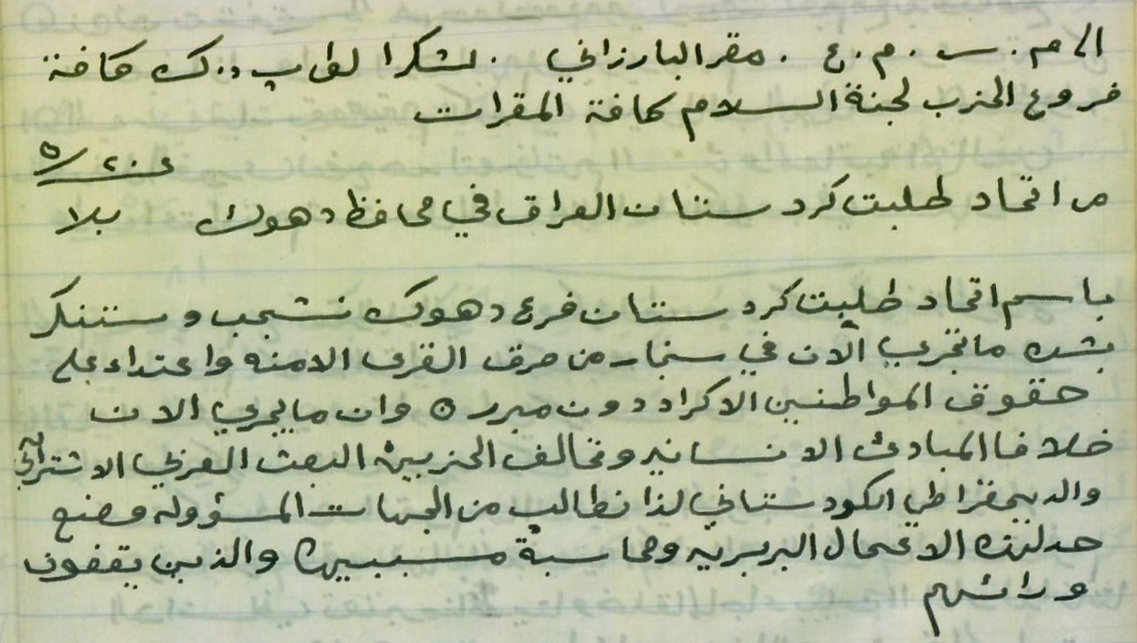 الى م. س. م. ع. مقر البارزاني. لشكرا لقاب د. ك كافة
فروع الحزب لجنة السلام كافة المقرات
٥/٢٠٤
من اتحاد طلبت كردستان العراق في محافظ دهوك بلا
باسم اتحاد طلبت كردستان فرع دهوك نشجب و ستنكر
بشده ما تجري الآن في سنجار من حرق القرى الامنه واعتداء على
حقوق المواطنين الاكراد دون مبرر ٥ وان ما يجري الان
خلافا المبادئ الانسانيه وتخالف الحزبين البعث العربي الاشتراكي
والديمقراطي الكودستاني لذا نطالب من الجهات المسؤوله وضع
حد لهذه الاعمال البربريه ومحاسبة مسببيها والذين يقفون
ورائهم